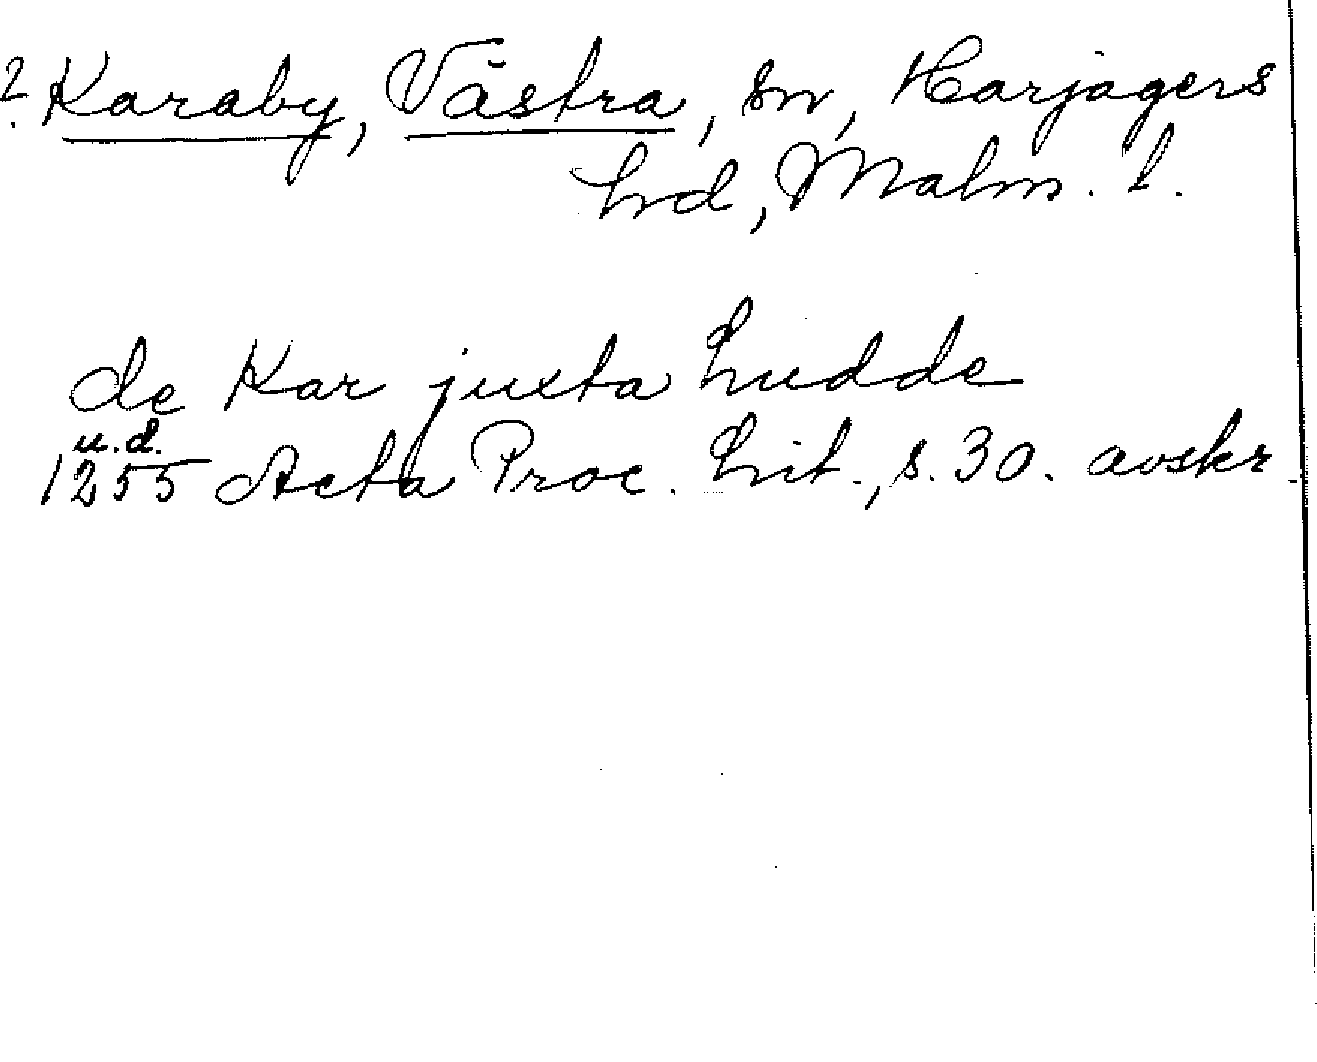 ? Karaby, Västra, sn, Harjagers
hd, Malm. l.
de Kar juxta Ludde
u.d.
1255 Acta Proc. Lit., s. 30. avskr.